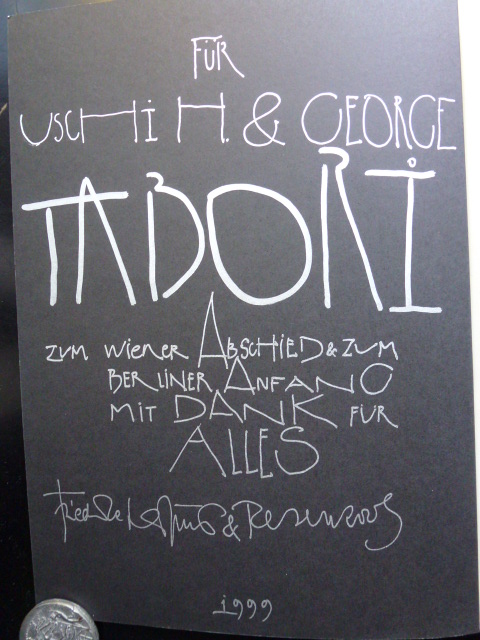 FÜR
USCHI H. & GEORGE
TABORI
ZUM WIENER ABSCHIED & ZUM
BERLINER ANFANG
MIT DANK FÜR
ALLES
&
1999